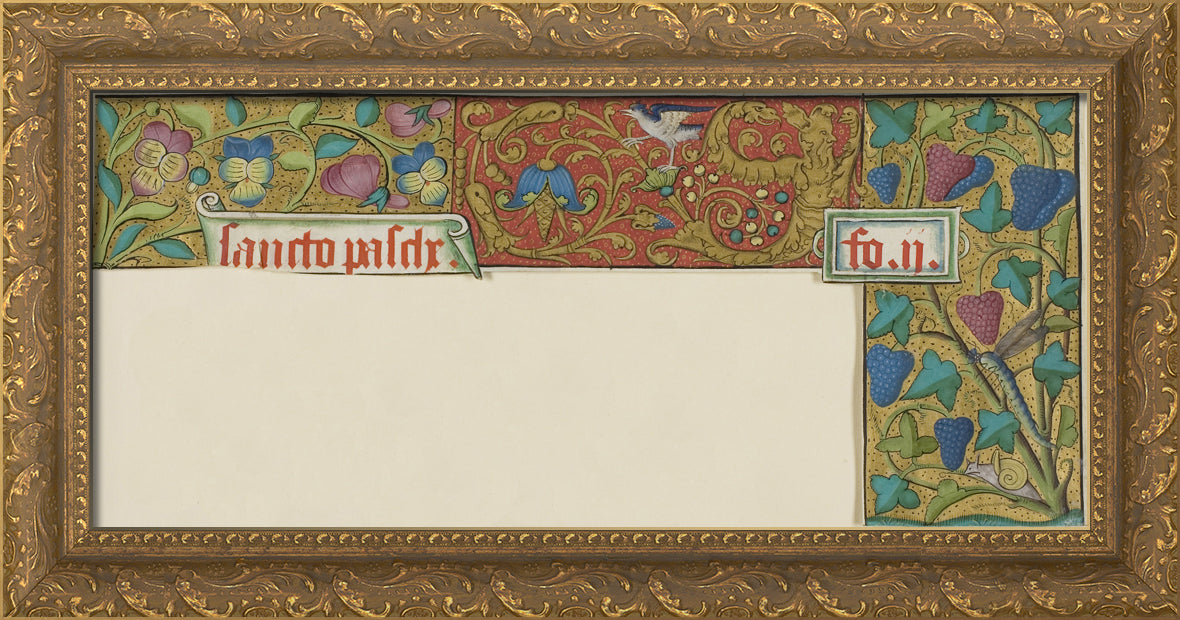 sancto paschæ.
fo. ij.